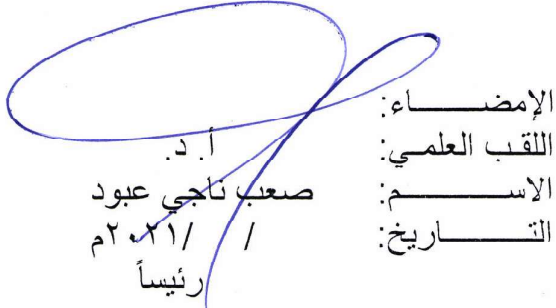 الإمضــــــاء:
اللقب العلمي: أ. د.
الاســـــــم: صعب ناجي عبود
التـــــــاريخ: / /٢٠٢١م
رئيساً